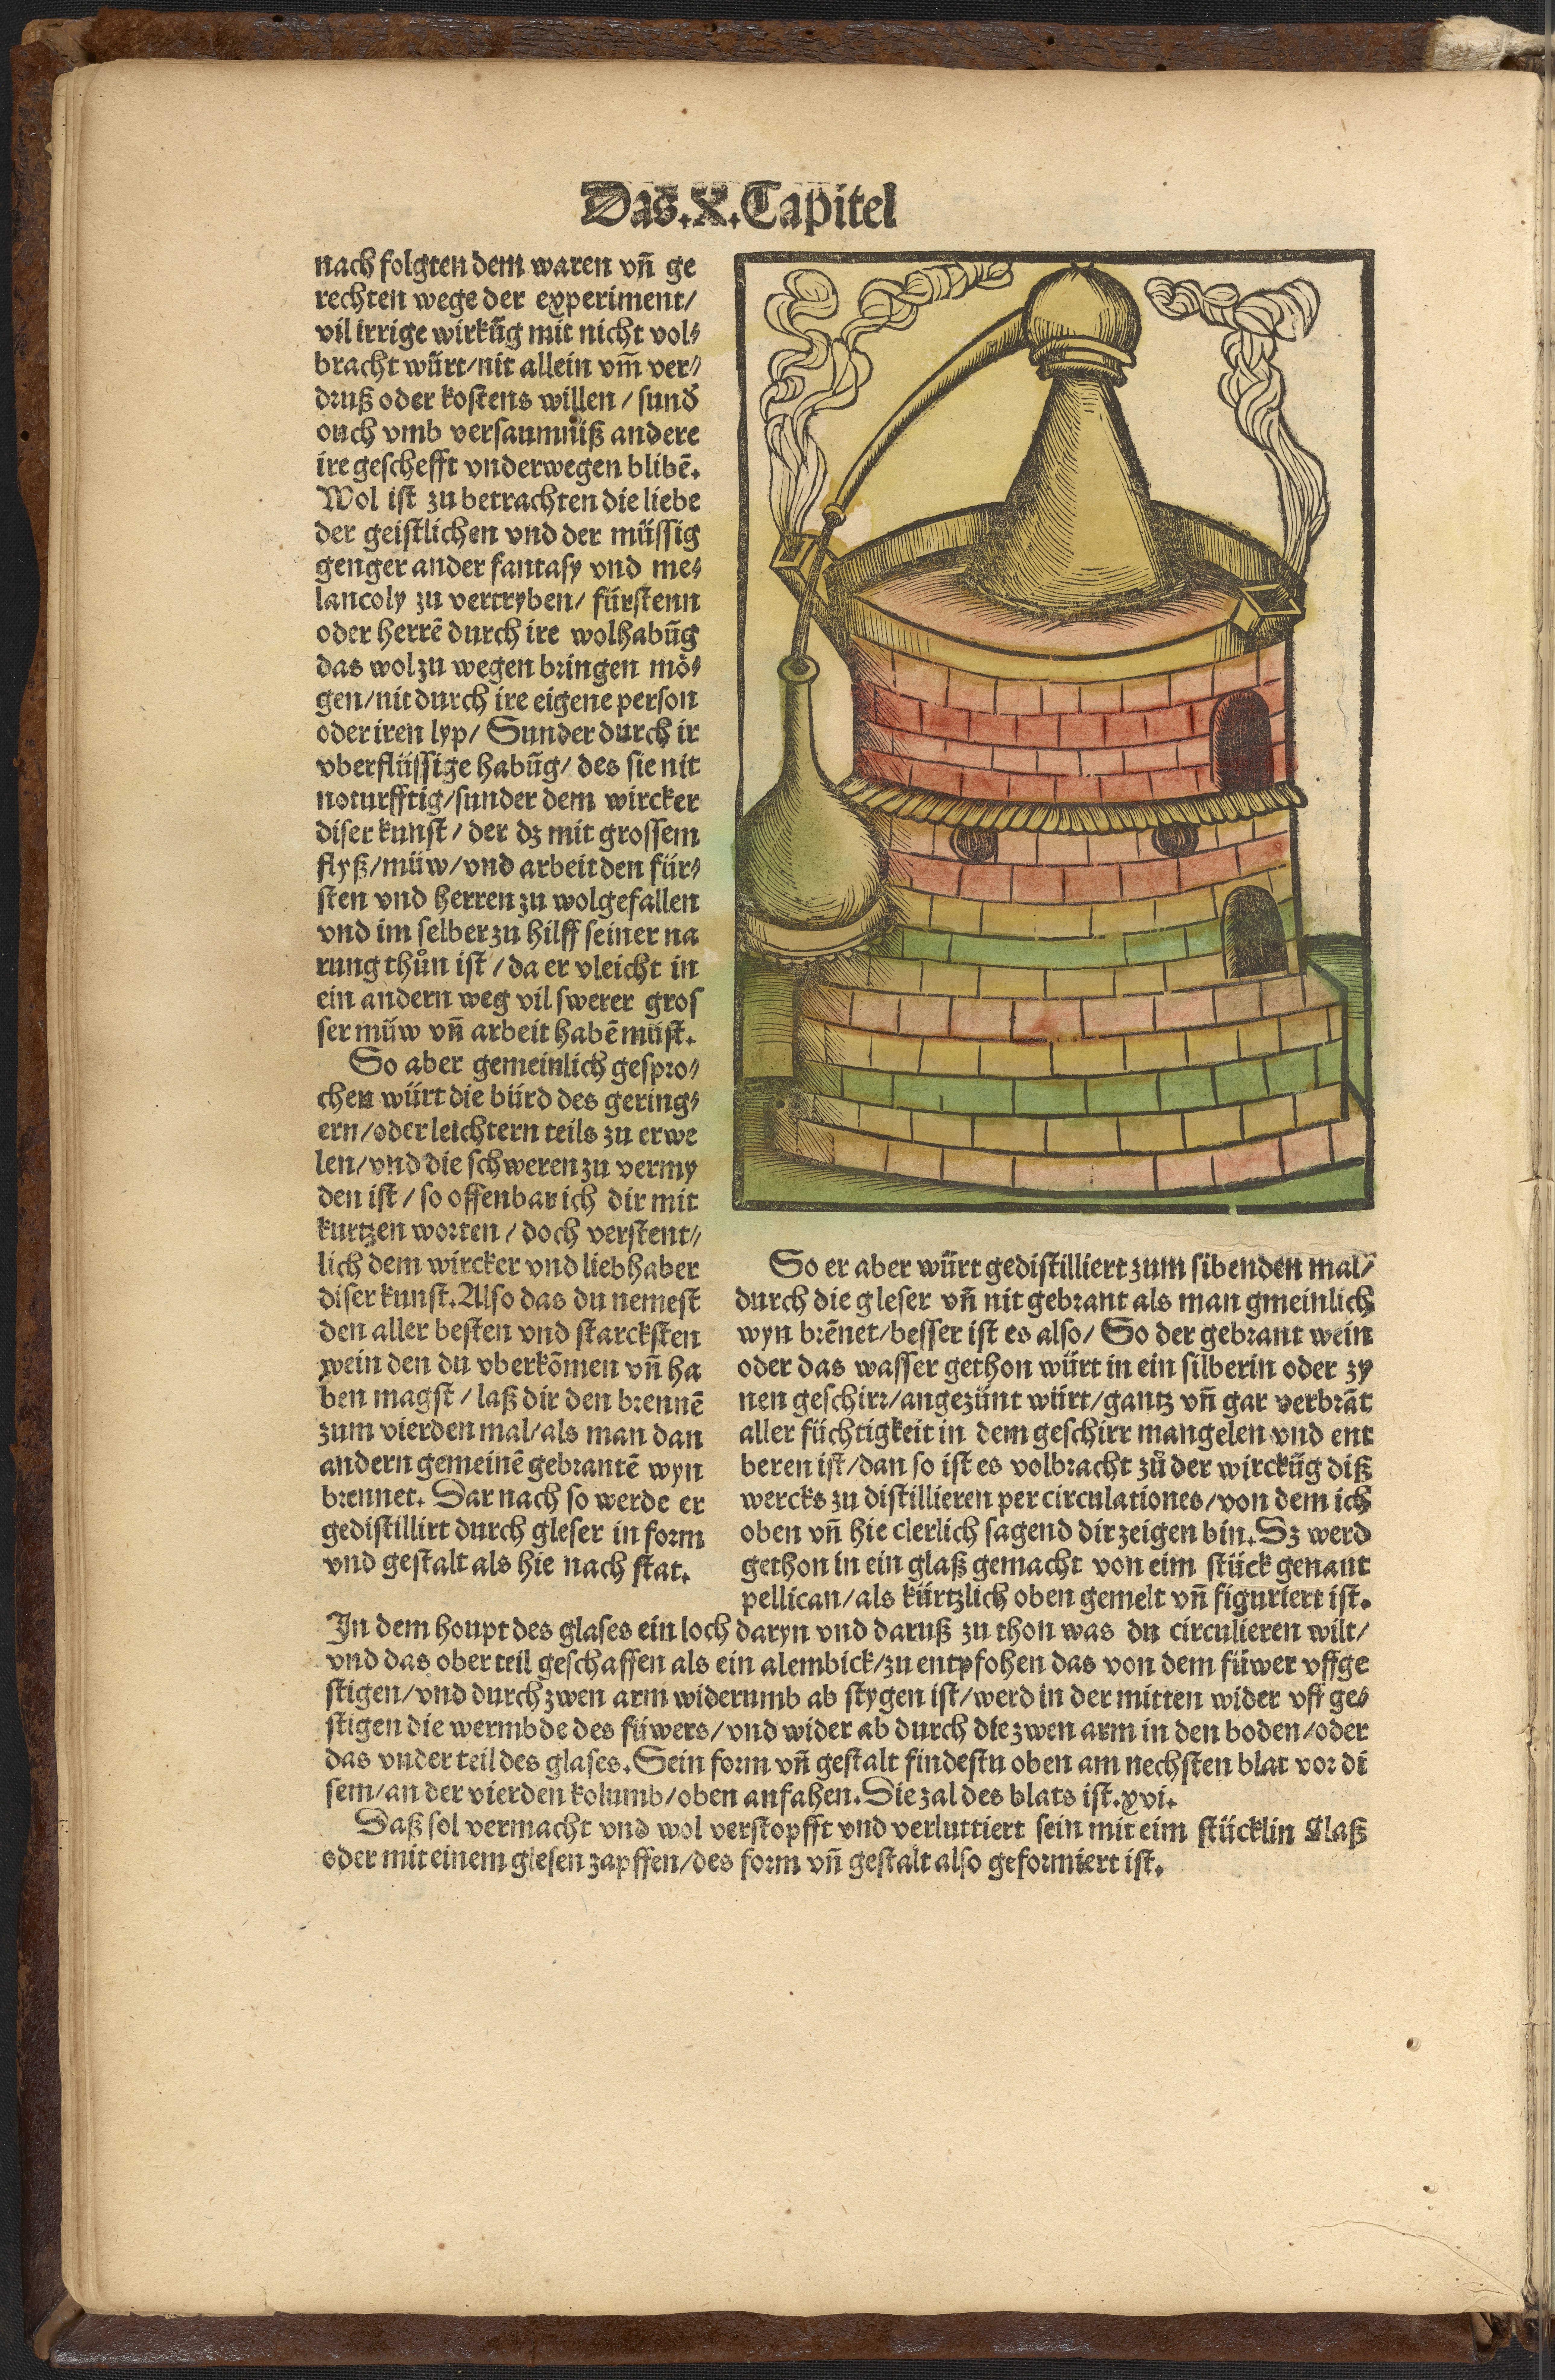 Das.X.Capitel
nach folgten dem waren vñ ge
rechten wege der experiment/
vil irrige wirkũg mit nicht vol⸗
bracht würt/nit allein vm̃ ver⸗
druß oder kostens willen/ sund̾
ouch vmb versaumniß andere
ire geschefft vnderwegen blibẽ.
Wol ist zu betrachten die liebe
der geistlichen vnd der müssig
genger ander fantasy vnd me⸗
lancoly zu vertryben/ fürstenn
oder herrẽ durch ire wolhabũg
das wol zu wegen bringen mö⸗
gen/nit durch ire eigene person
oder iren lyp/ Sunder durch ir
vberflüssige habũg/ des sie nit
noturfftig/sunder dem wircker
diser kunst/ der dz mit grossem
flyß/müw/vnd arbeit den für⸗
sten vnd herren zu wolgefallen
vnd im selber zu hilff seiner na
rung thůn ist/ da er vleicht in
ein andern weg vil swerer gros
ser müw vñ arbeit habẽ müst.
So aber gemeinlich gespro⸗
chen würt die bürd des gering⸗
ern/oder leichtern teils zu erwe
len/vnd die schweren zu vermy
den ist/ so offenbar ich dir mit
kurtzen worten/ doch verstent⸗
lich dem wircker vnd liebhaber
diser kunst. Also das du nemest
den aller besten vnd starcksten
wein den du vberkõmen vñ ha
ben magst/ laß dir den brennẽ
zum vierden mal/als man dan
andern gemeinẽ gebrantẽ wyn
brennet. Dar nach so werde er
gedistillirt durch gleser in form
vnd gestalt als hie nach stat.
So er aber würt gedistilliert zum sibenden mal/
durch die gleser vñ nit gebrant als man gmeinlich
wyn brẽnet/besser ist es also/ So der gebrant wein
oder das wasser gethon würt in ein silberin oder zy
nen geschirr/angezünt würt/gantz vñ gar verbrãt
aller füchtigkeit in dem geschirr mangelen vnd ent
beren ist/dan so ist es volbracht zů der wirckũg diß
wercks zu distillieren per circulationes/von dem ich
oben vñ hie clerlich sagend dir zeigen bin. Dz werd
gethon in ein glaß gemacht von eim stück genant
pellican/als kürtzlich oben gemelt vñ figuriert ist.
In dem houpt des glases ein loch daryn vnd daruß zu thon was du circulieren wilt/
vnd das ober teil geschaffen als ein alembick/zu entpfohen das von dem füwer vffge
stigen/vnd durch zwen arm widerumb ab stygen ist/werd in der mitten wider vff ge⸗
stigen die wermbde des füwers/vnd wider ab durch die zwen arm in den boden/oder
das vnder teil des glases. Sein form vñ gestalt findestu oben am nechsten blat vor di
sem/an der vierden kolumb/oben anfahen. Die zal des blats ist.xvi.
Daß sol vermacht vnd wol verstopfft vnd verluttiert sein mit eim stücklin Glaß
oder mit einem glesen zapffen/des form vñ gestalt also geformiert ist.